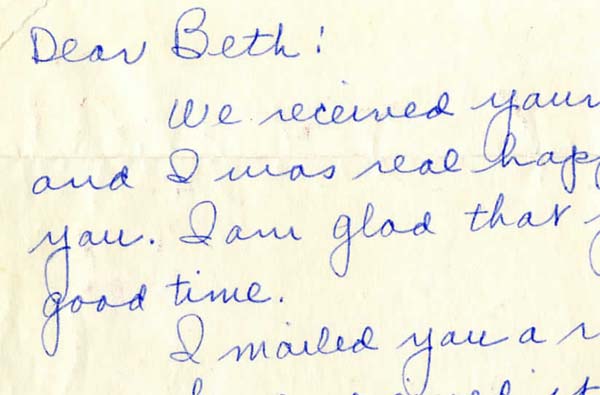 Dear Beth!
We received your
and I was real hap
you. I am glad that
good time.
I mailed you a